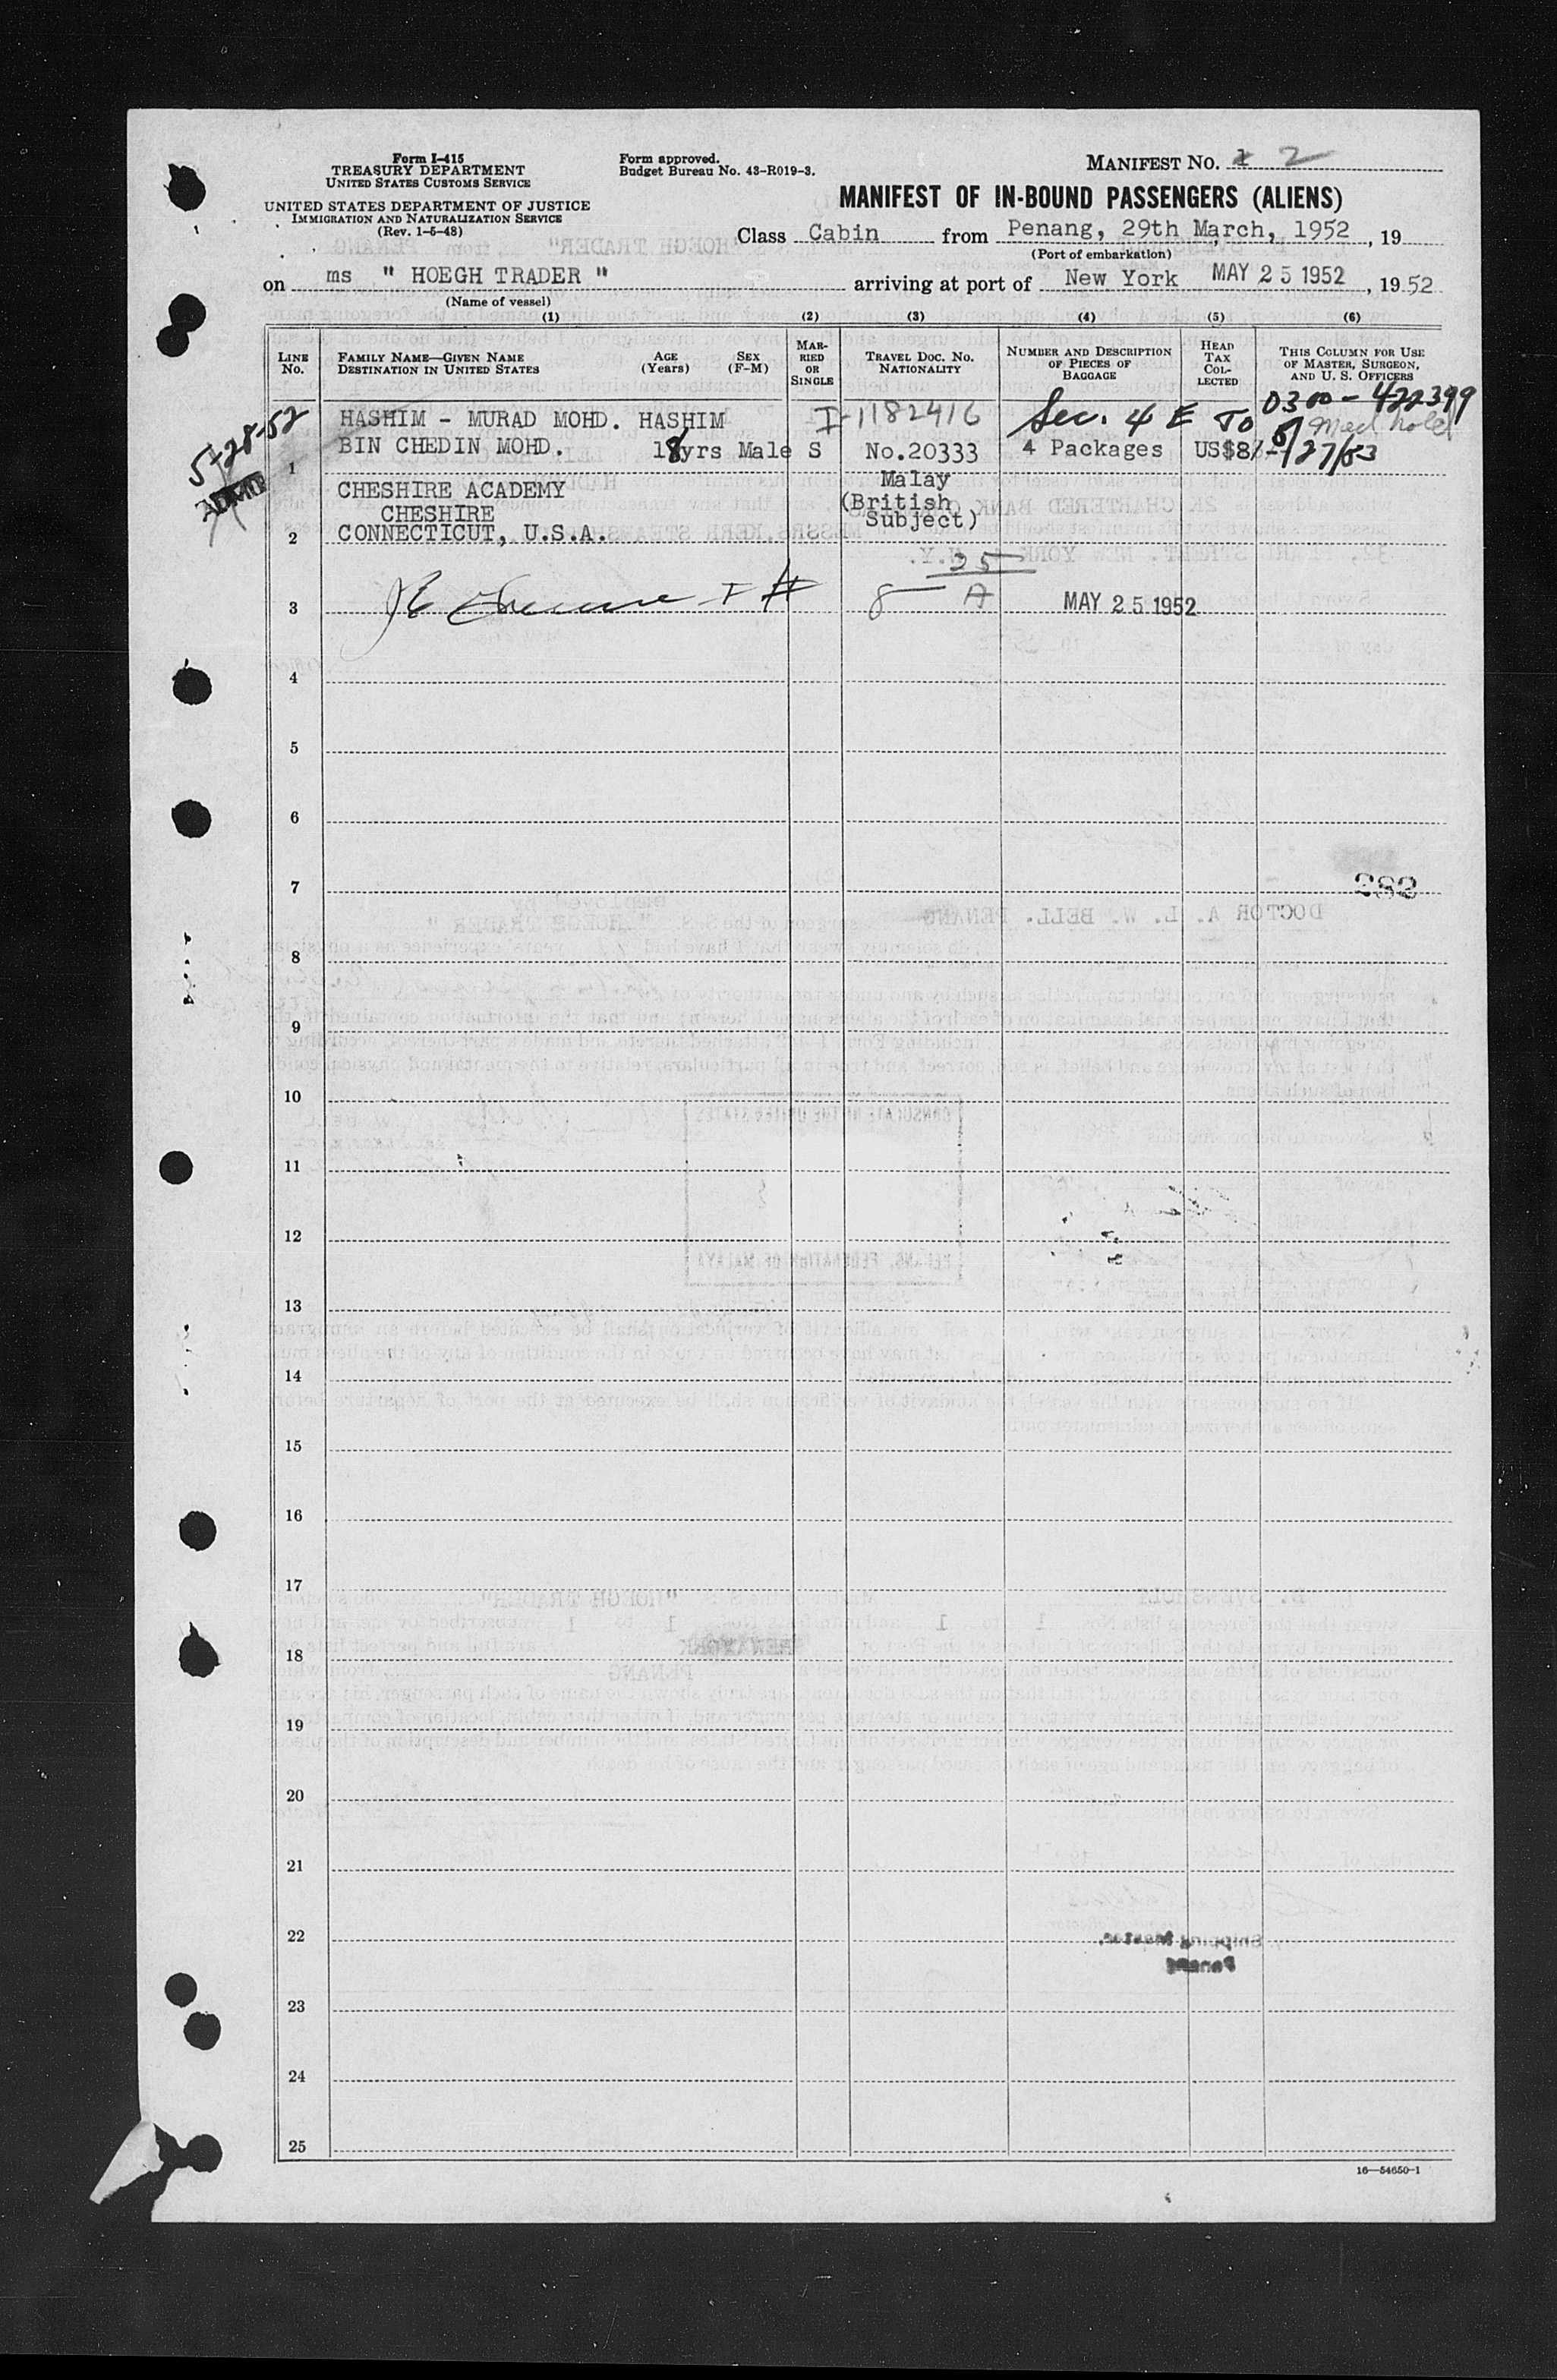 Form I-415
TREASURY DEPARTMENT
UNITED STATES CUSTOMS SERVICE
UNITED STATES DEPARTMENT OF JUSTICE
IMMIGRATION AND NATURALIZATION SERVICE
(Rev. 1-5-48)
Form approved.
Budget Bureau No. 43-R019-3.
MANIFEST NO. 1 2
MANIFEST OF IN-BOUND PASSENGERS (ALIENS)
Class Cabin from Penang, 29th March, 1952, 19
(Port of embarkation)
on ms " HOEGH TRADER " arriving at port of New York MAY 25 1952, 1952
(Name of vessel)
(1) (2) (3) (4) (5) (6)
LINE NO.
FAMILY NAME—GIVEN NAME
DESTINATION IN UNITED STATES
AGE (Years)
SEX (F-M)
MARRIED OR SINGLE
TRAVEL DOC. NO.
NATIONALITY
NUMBER AND DESCRIPTION OF PIECES OF BAGGAGE
HEAD TAX COLLECTED
THIS COLUMN FOR USE OF MASTER, SURGEON, AND U. S. OFFICERS
0300-422399
HASHIM - MURAD MOHD. HASHIM I-1182416 Sec. 4 E To Med hold
5-28-52
BIN CHEDIN MOHD. 18yrs Male S No.20333 4 Packages US$8/- 5/27/53
1
ADMTD
CHESHIRE ACADEMY Malay
CHESHIRE (British
CONNECTICUT, U.S.A. Subject)
2
25
3 8 A MAY 25 1952
4
5
6
7 282
8
9
10
11
12
13
14
15
16
17
18
19
20
21
22
23
24
25
16—54650-1